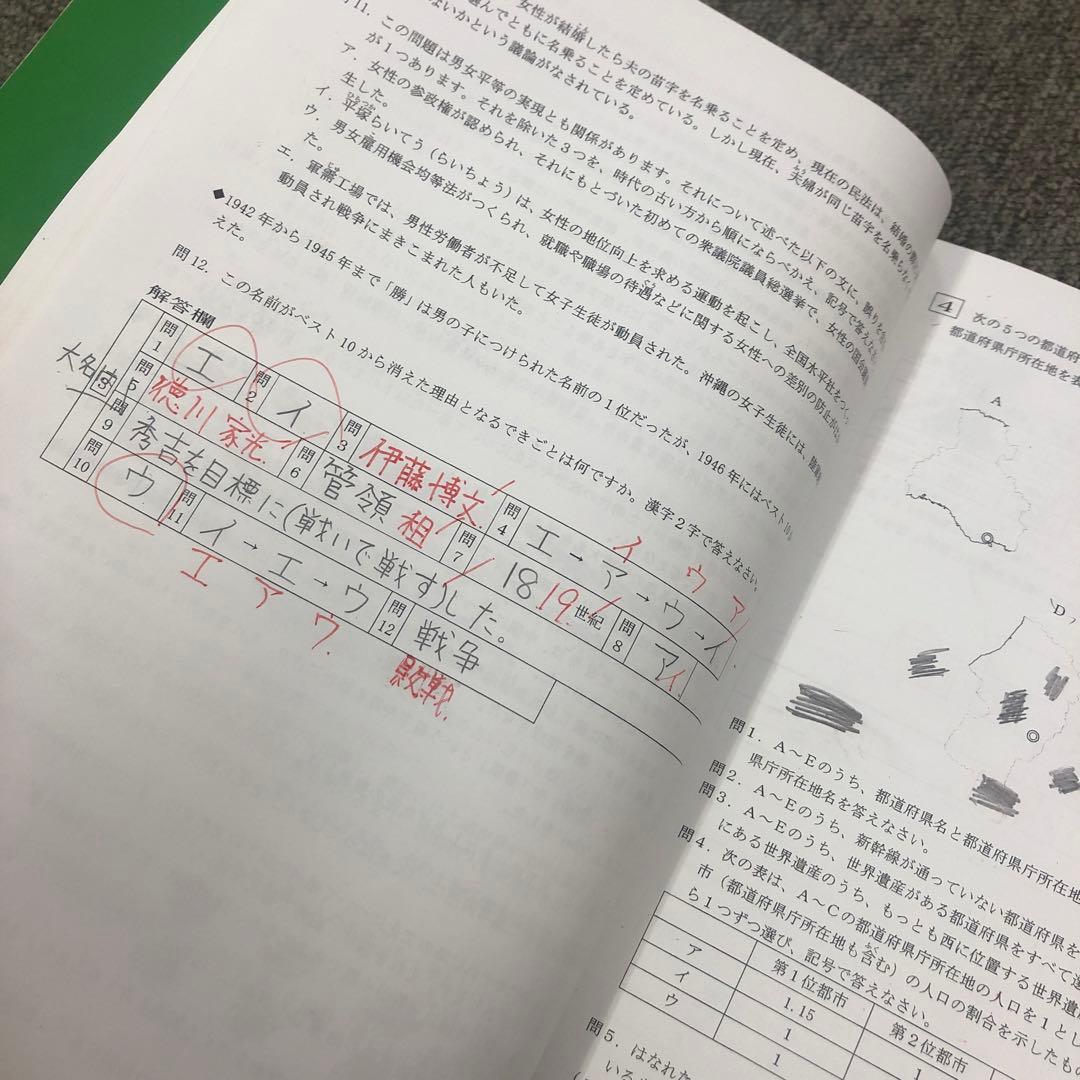 女性が結婚したら夫の苗字を名乗ることを定め、現在の民法は、結婚の際に
選んでともに名乗ることを定めている。しかし現在、夫婦が同じ苗字を名乗
ないかという議論がなされている。
11. この問題は男女平等の実現とも関係があります。それについて述べた以下の文に、誤りを含
が1つあります。それを除いた3つを、時代の古い方から順にならべかえ、記号で答えなさい
ア. 女性の参政権が認められ、それにもとづいた初めての衆議院議員総選挙で、女性の国会議員
生した。
イ. 平塚らいてう(らいちょう)は、女性の地位向上を求める運動を起こし、全国水平社をつくっ
ウ. 男女雇用機会均等法がつくられ、就職や職場の待遇などに関する女性への差別の防止が
た。
エ. 軍需工場では、男性労働者が不足して女子生徒が動員された。沖縄の女子生徒には、
動員され戦争にまきこまれた人もいた。
◆1942年から1945年まで「勝」は男の子につけられた名前の1位だったが、1946年にはベスト10
えた。
問12. この名前がベスト10から消えた理由となるできごとは何ですか。漢字2字で答えなさい。
解答欄
問1 エ 問2 イ 問3 伊藤博文 問4 エ→ア→ウ→イ
イ ウ ア
問5 徳川家光 問6 管領 租 問7 18 19 世紀 問8 ア イ
問9 秀吉を目標に(戦いで戦す)した。
問10 ウ 問11 イ→エ→ウ 問12 戦争
エ ア ウ
敗戦
4 次の5つの都道府
都道府県庁所在地を表
A
D
問1. A~Eのうち、都道府県名と都道府県庁所在地
県庁所在地名を答えなさい。
問2. A~Eのうち、新幹線が通っていない都道府県を
問3. A~Eのうち、世界遺産がある都道府県をすべて選
にある世界遺産のうち、もっとも西に位置する世界遺産
問4. 次の表は、A~Cの都道府県庁所在地の人口を1とし
市(都道府県庁所在地も含む)の人口の割合を示したもの
ら1つずつ選び、記号で答えなさい。
第1位都市 第2位都市
ア 1.15 1
イ 1
ウ 1
問5. はなれた